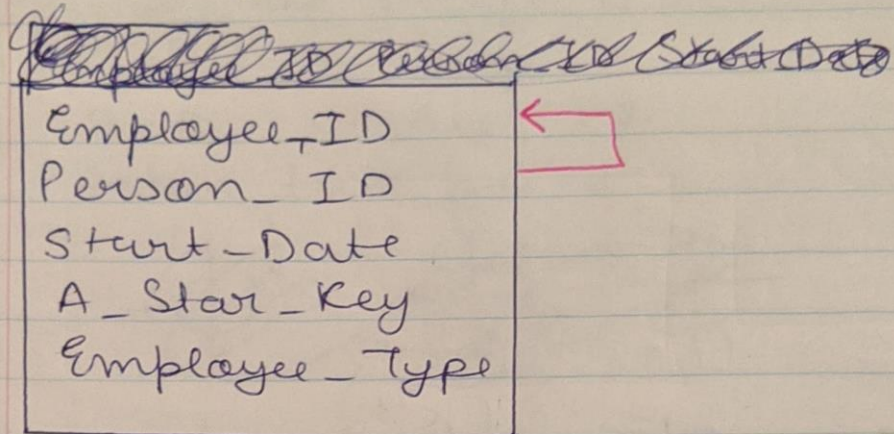 Employee_ID
Person_ID
Start_Date
A_Star_Key
Employee_Type